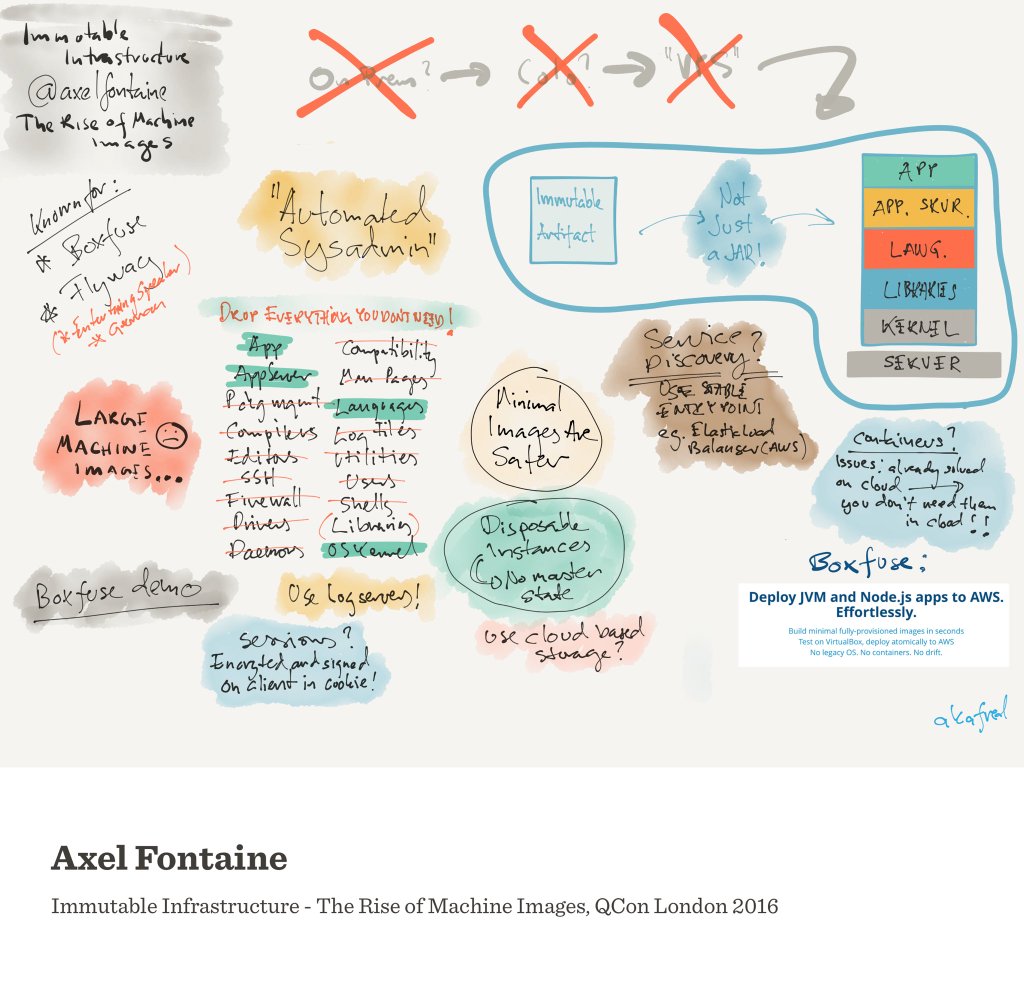 Immutable
Infrastructure
@axelfontaine
The Rise of Machine
Images
On Prem? → Colo? → "VPS"
Known for:
* Boxfuse
* Flyway
(* Entertaining Speaker)
* German
"Automated
Sysadmin"
Immutable
Artifact
Not
Just
a JAR!
APP
APP. SRVR.
LANG.
LIBRARIES
KERNEL
SERVER
DROP EVERYTHING YOU DONT NEED!
App
AppServer
Pckg mgmt
Compilers
Editors
SSH
Firewall
Drivers
Daemons
Compatibility
Man Pages
Languages
Log files
Utilities
Users
Shells
(Libraries)
OS Kernel
LARGE
MACHINE
IMAGES...
Minimal
Images Are
Safer
Service?
Discovery?
USE STABLE
ENTRY POINT
e.g. Elastic Load
Balancer (AWS)
containers?
Issues: already solved
on cloud →
you don't need them
in cloud!!
Disposable
Instances
No master
state
Boxfuse demo
Use log servers!
Sessions?
Encrypted and signed
on client in cookie!
use cloud based
storage?
Boxfuse:
Deploy JVM and Node.js apps to AWS.
Effortlessly.
Build minimal fully-provisioned images in seconds
Test on VirtualBox, deploy atomically to AWS
No legacy OS. No containers. No drift.
akafred
Axel Fontaine
Immutable Infrastructure - The Rise of Machine Images, QCon London 2016